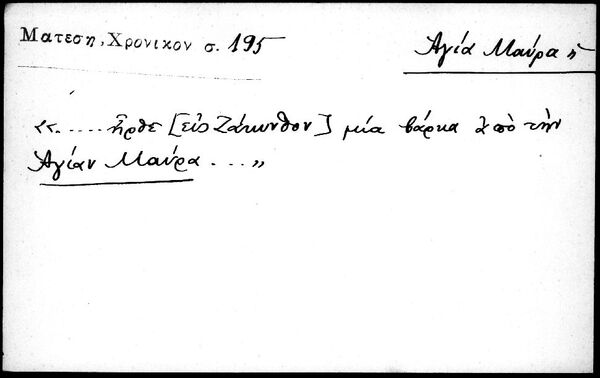 Ματεση, Χρονικον σ. 195
Ἁγία Μαύρα ἡ
«..... ἦρθε [εἰς Ζάκυνθον] μία βάρκα ἀπὸ τὴν
Ἁγίαν Μαύρα ...»